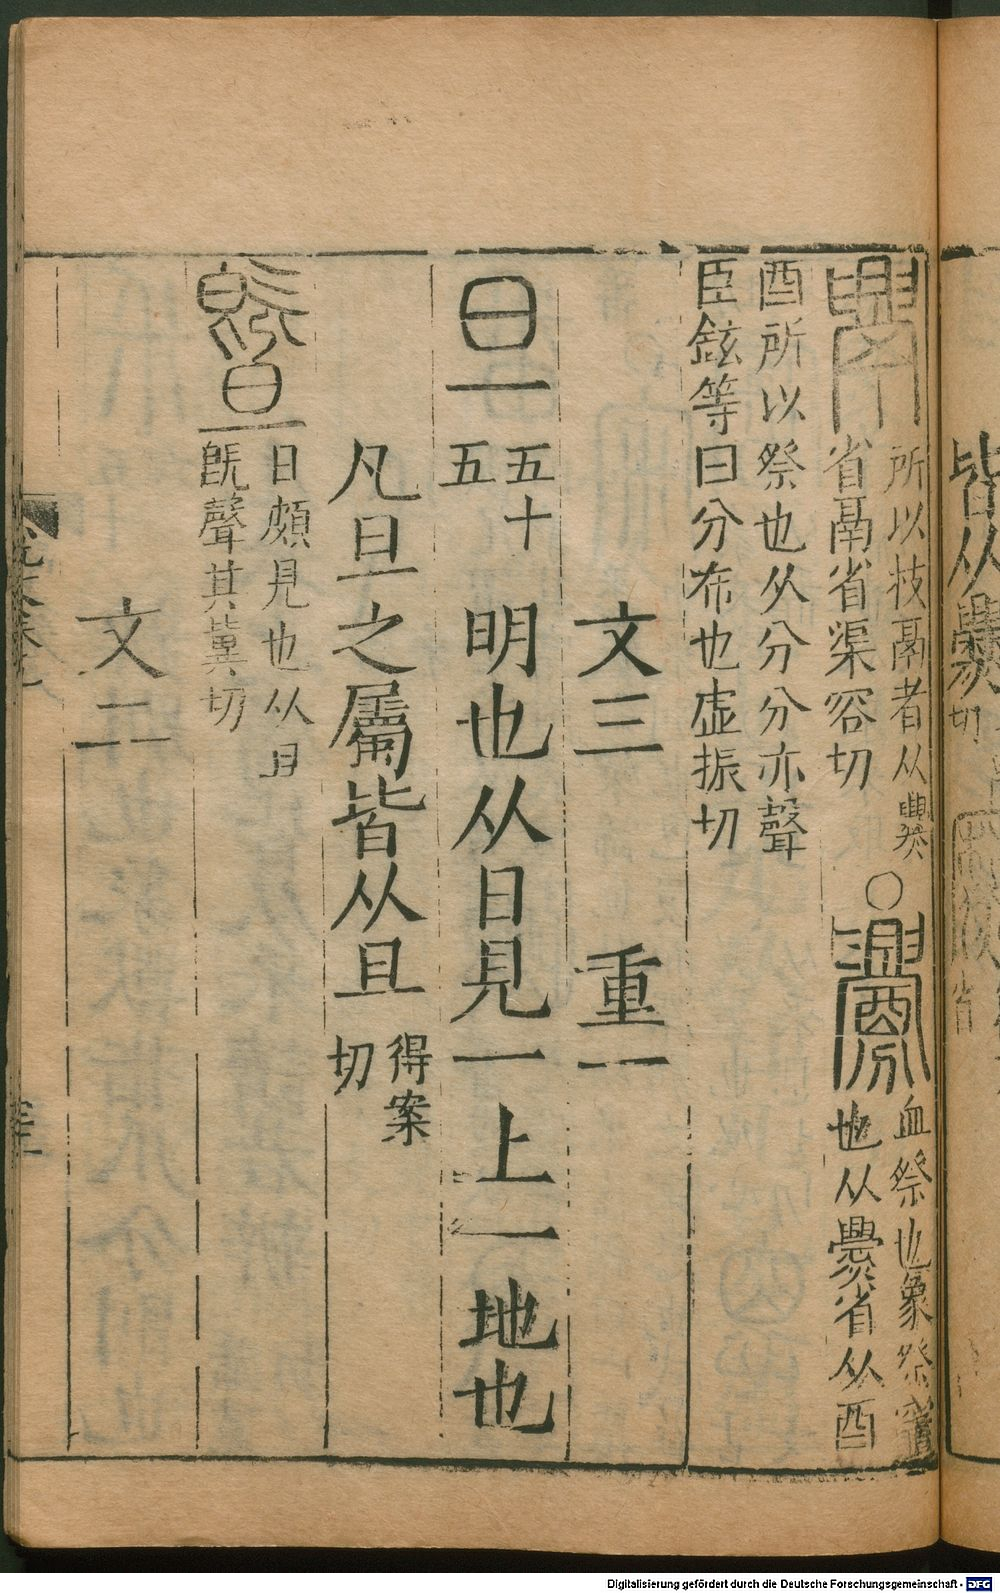 所以枝鬲者从爨
省鬲省渠容切
○
釁
血祭也象祭竈
也从爨省从酉
酉所以祭也从分分亦聲
臣鉉等曰分布也虚振切
文三 重一
旦
五十
五
明也从日見一上一地也
凡旦之屬皆从旦
得案
切
暨
日頗見也从旦
旣聲其冀切
文二
皆从爨
切
Digitalisierung gefördert durch die Deutsche Forschungsgemeinschaft - DFG